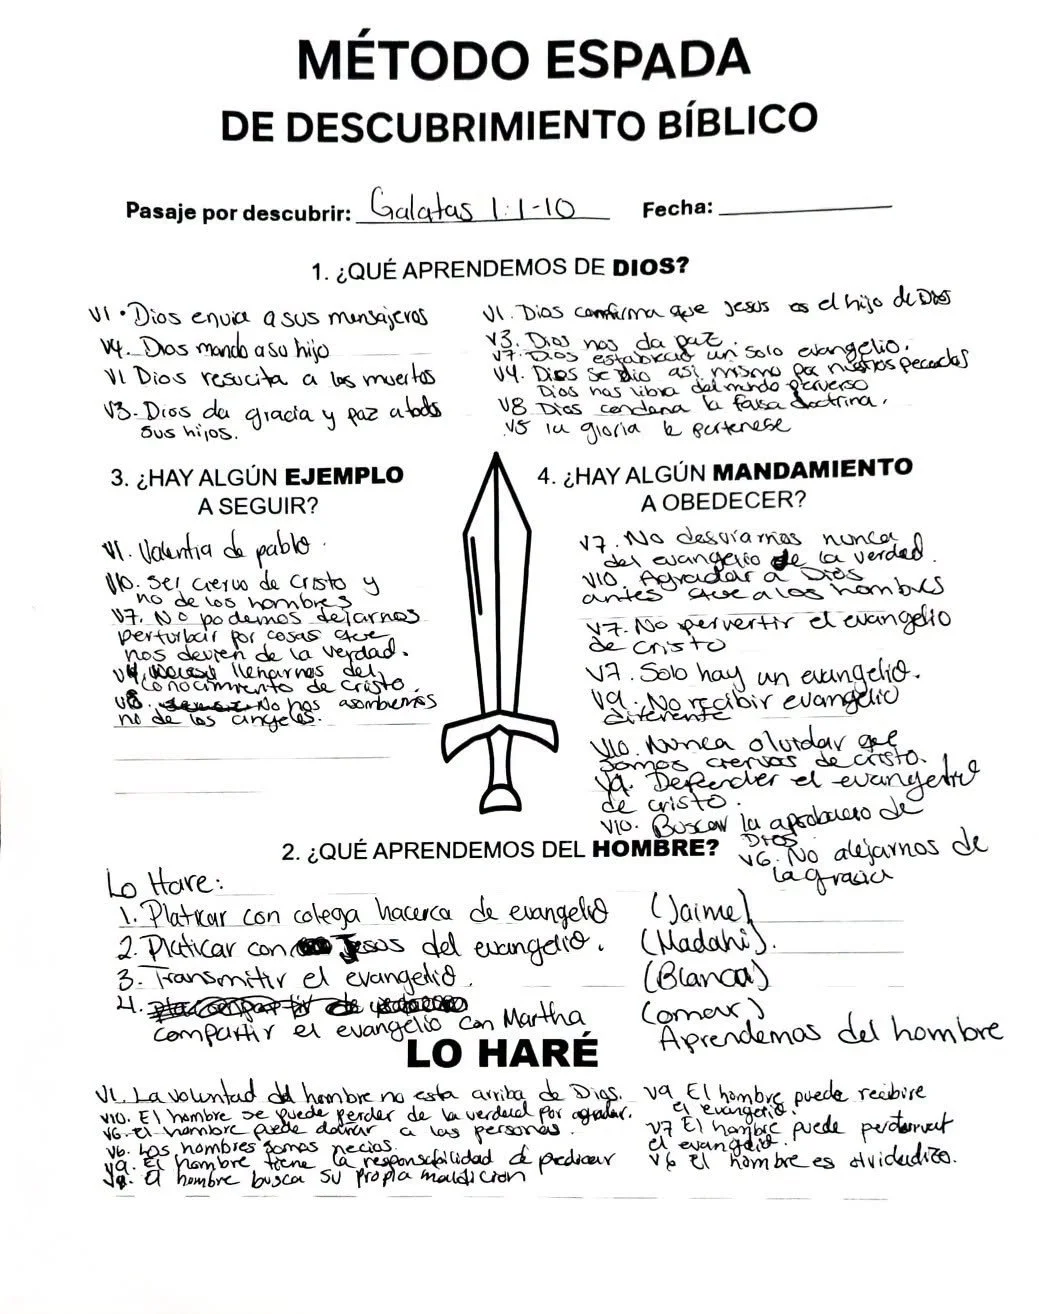 MÉTODO ESPADA
DE DESCUBRIMIENTO BÍBLICO
Pasaje por descubrir: Galatas 1:1-10 Fecha:
1. ¿QUÉ APRENDEMOS DE DIOS?
V1 • Dios envia a sus mensajeros
V4. Dios mando a su hijo
V1 Dios resucita a los muertos
V3. Dios da gracia y paz a tods
sus hijos.
V1. Dios comfirma que Jesus es el hijo de Dios
V3. Dios nos da paz.
V7. Dios establecio un solo evangelio.
V4. Dios se Dio asi mismo por nuestros pecados
Dios nos libra del mundo perverso
V8 Dios condena la falsa doctrina.
V5 la gloria le pertenese
3. ¿HAY ALGÚN EJEMPLO
A SEGUIR?
V1. Valentia de pablo.
V10. Ser ciervo de Cristo y
no de los hombres
V7. No podemos dejarnos
perturbar por cosas que
nos devien de la verdad.
V4. llenarnos del
conocimiento de Cristo
V8. No nos asombemos
no de los angeles.
4. ¿HAY ALGÚN MANDAMIENTO
A OBEDECER?
V7. No desviarnos nunca
del evangelio de la verdad.
V10. Agradar a Dios
antes que a los hombres
V7. No pervertir el evangelio
de cristo
V7. Solo hay un evangelio.
V9. No recibir evangelio
diferente
V10. Nunca olvidar que
somos ciervos de cristo.
V9. Defender el evangelio
de cristo.
V10. Buscar la aprobacio de
Dios
V6. No alejarnos de
la gracia
2. ¿QUÉ APRENDEMOS DEL HOMBRE?
Lo Hare:
1. Platicar con colega hacerca de evangelio (Jaime)
2. Platicar con Jesos del evangelio. (Madahi).
3. Transmitir el evangelio. (Blanca)
4. compartir el evangelio con Martha (omar)
Aprendemos del hombre
LO HARÉ
V1. La voluntad del hombre no esta arriba de Dios.
V10. El hombre se puede perder de la verdad por agradar.
V6. El hombre puede dañar a las personas.
V6. Los hombres somos necios.
V9. El hombre tiene la responsabilidad de predicar
V8. El hombre busca su propia maldicion
V9 El hombre puede recibire
el evangelio.
V7 El hombre puede perdervet
el evangelio.
V6 El hombre es olvidadizo.